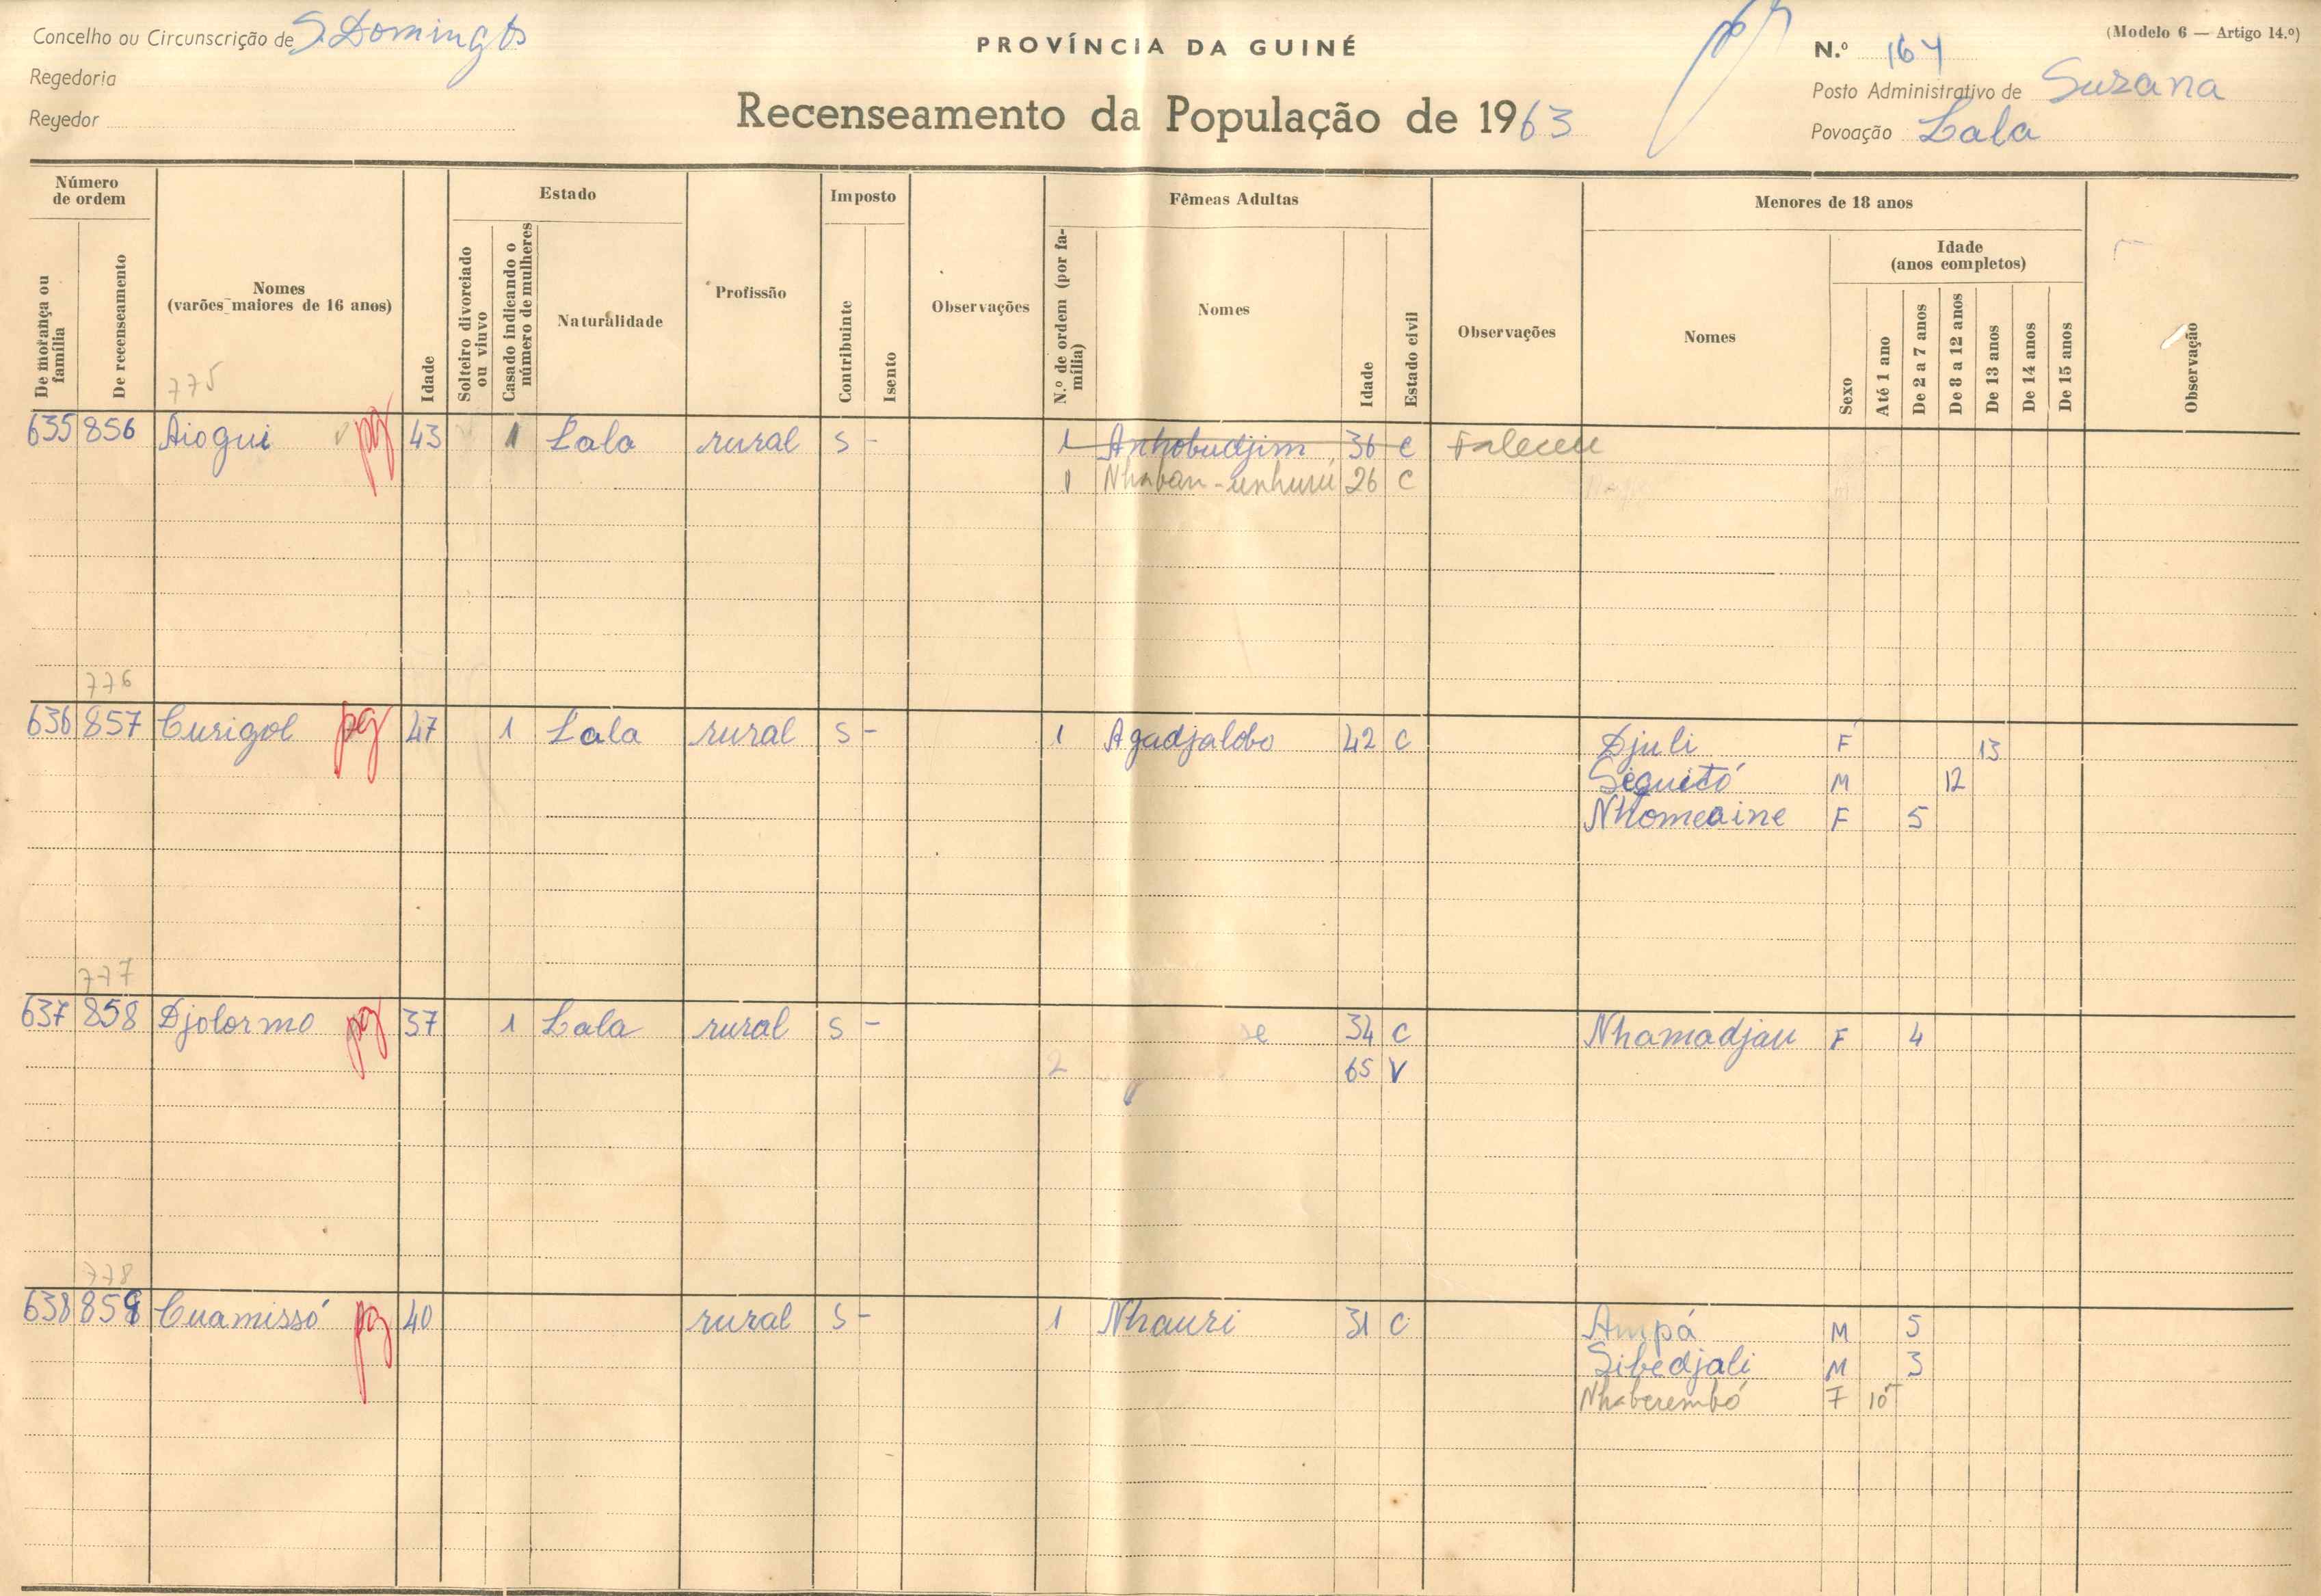 Concelho ou Circunscrição de S. Domingos
PROVÍNCIA DA GUINÉ
N.º 164
(Modelo 6 — Artigo 14.º)
Regedoria
Posto Administrativo de Suzana
Regedor
Recenseamento da População de 1963
Povoação Lala
Número de ordem
De morança ou família
De recenseamento
Nomes
(varões maiores de 16 anos)
Idade
Estado
Solteiro divorciado ou viuvo
Casado indicando o número de mulheres
Naturalidade
Profissão
Imposto
Contribuinte
Isento
Observações
Fêmeas Adultas
N.º de ordem (por família)
Nomes
Idade
Estado civil
Observações
Menores de 18 anos
Nomes
Sexo
Idade
(anos completos)
Até 1 ano
De 2 a 7 anos
De 8 a 12 anos
De 13 anos
De 14 anos
De 15 anos
Observação
775
635 856 Aiogui pg 43 1 Lala rural S - 1 Anhobudjim 36 C Faleceu
1 26 C
776
636 857 Curigol pg 47 1 Lala rural S - 1 Agadjalobo 42 C Djuli F 13
Siguitó M 12
Nhomeaine F 5
777
637 858 Djolormo pg 37 1 Lala rural S - se 34 C Nhamadjau F 4
2 65 V
778
638 859 Cuamissó pg 40 rural S - 1 Nhauri 31 C Ampá M 5
Sibedjali M 3
Nhaberembó F